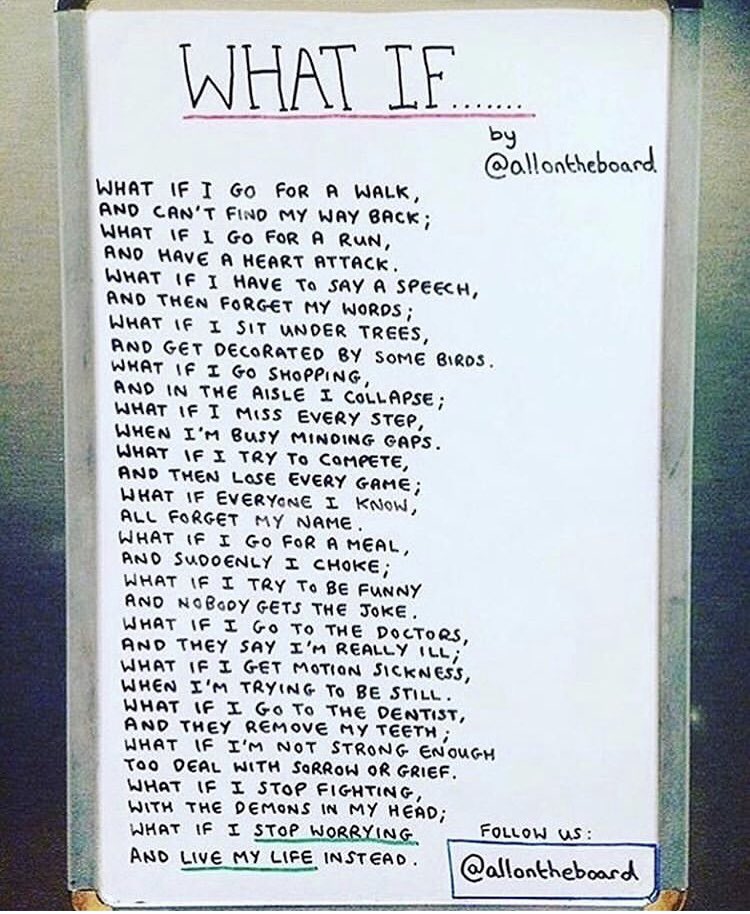 WHAT IF.......
by
@allontheboard
WHAT IF I GO FOR A WALK,
AND CAN'T FIND MY WAY BACK;
WHAT IF I GO FOR A RUN,
AND HAVE A HEART ATTACK.
WHAT IF I HAVE TO SAY A SPEECH,
AND THEN FORGET MY WORDS;
WHAT IF I SIT UNDER TREES,
AND GET DECORATED BY SOME BIRDS.
WHAT IF I GO SHOPPING,
AND IN THE AISLE I COLLAPSE;
WHAT IF I MISS EVERY STEP,
WHEN I'M BUSY MINDING GAPS.
WHAT IF I TRY TO COMPETE,
AND THEN LOSE EVERY GAME;
WHAT IF EVERYONE I KNOW,
ALL FORGET MY NAME.
WHAT IF I GO FOR A MEAL,
AND SUDDENLY I CHOKE;
WHAT IF I TRY TO BE FUNNY
AND NOBODY GETS THE JOKE.
WHAT IF I GO TO THE DOCTORS,
AND THEY SAY I'M REALLY ILL;
WHAT IF I GET MOTION SICKNESS,
WHEN I'M TRYING TO BE STILL.
WHAT IF I GO TO THE DENTIST,
AND THEY REMOVE MY TEETH;
WHAT IF I'M NOT STRONG ENOUGH
TOO DEAL WITH SORROW OR GRIEF.
WHAT IF I STOP FIGHTING,
WITH THE DEMONS IN MY HEAD;
WHAT IF I STOP WORRYING
AND LIVE MY LIFE INSTEAD.
FOLLOW US:
@allontheboard